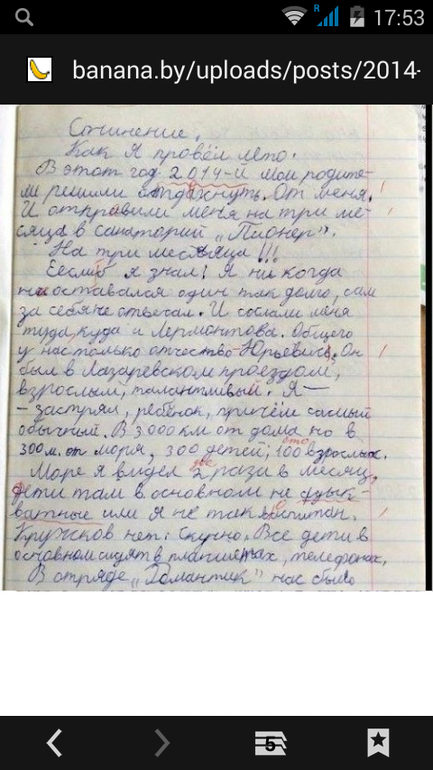 R
17:53
banana.by/uploads/posts/2014-
Сочинение.
Как Я провёл лето.
В этот год 2014-й мои родите-
ли решили отдохнуть. От меня.
И отправили меня на три ме-
сяца в санаторий „Пионер".
На три месяца!!!
Еслиб я знал! Я ни когда
не оставался один так долго, сам
за себя не отвечал. И сослали меня
туда, куда и Лермонтова. Общего
у нас только отчество-Юрьевич. Он
был в Лазаревском проездом,
взрослый, талантливый. Я —
- застрял, ребёнок, причём самый
обычный. В 3000 км от дома но в
сто
300 м. от моря, 300 детей, 100 взрослых.
две
Море я видел 2 раза в месяц,
дети там в основном не
или я не так воспитан.
Кружков нет! Скучно. Все дети в
основном сидят в планшетах, телефонах.
В отряде „Романтик" нас было
5